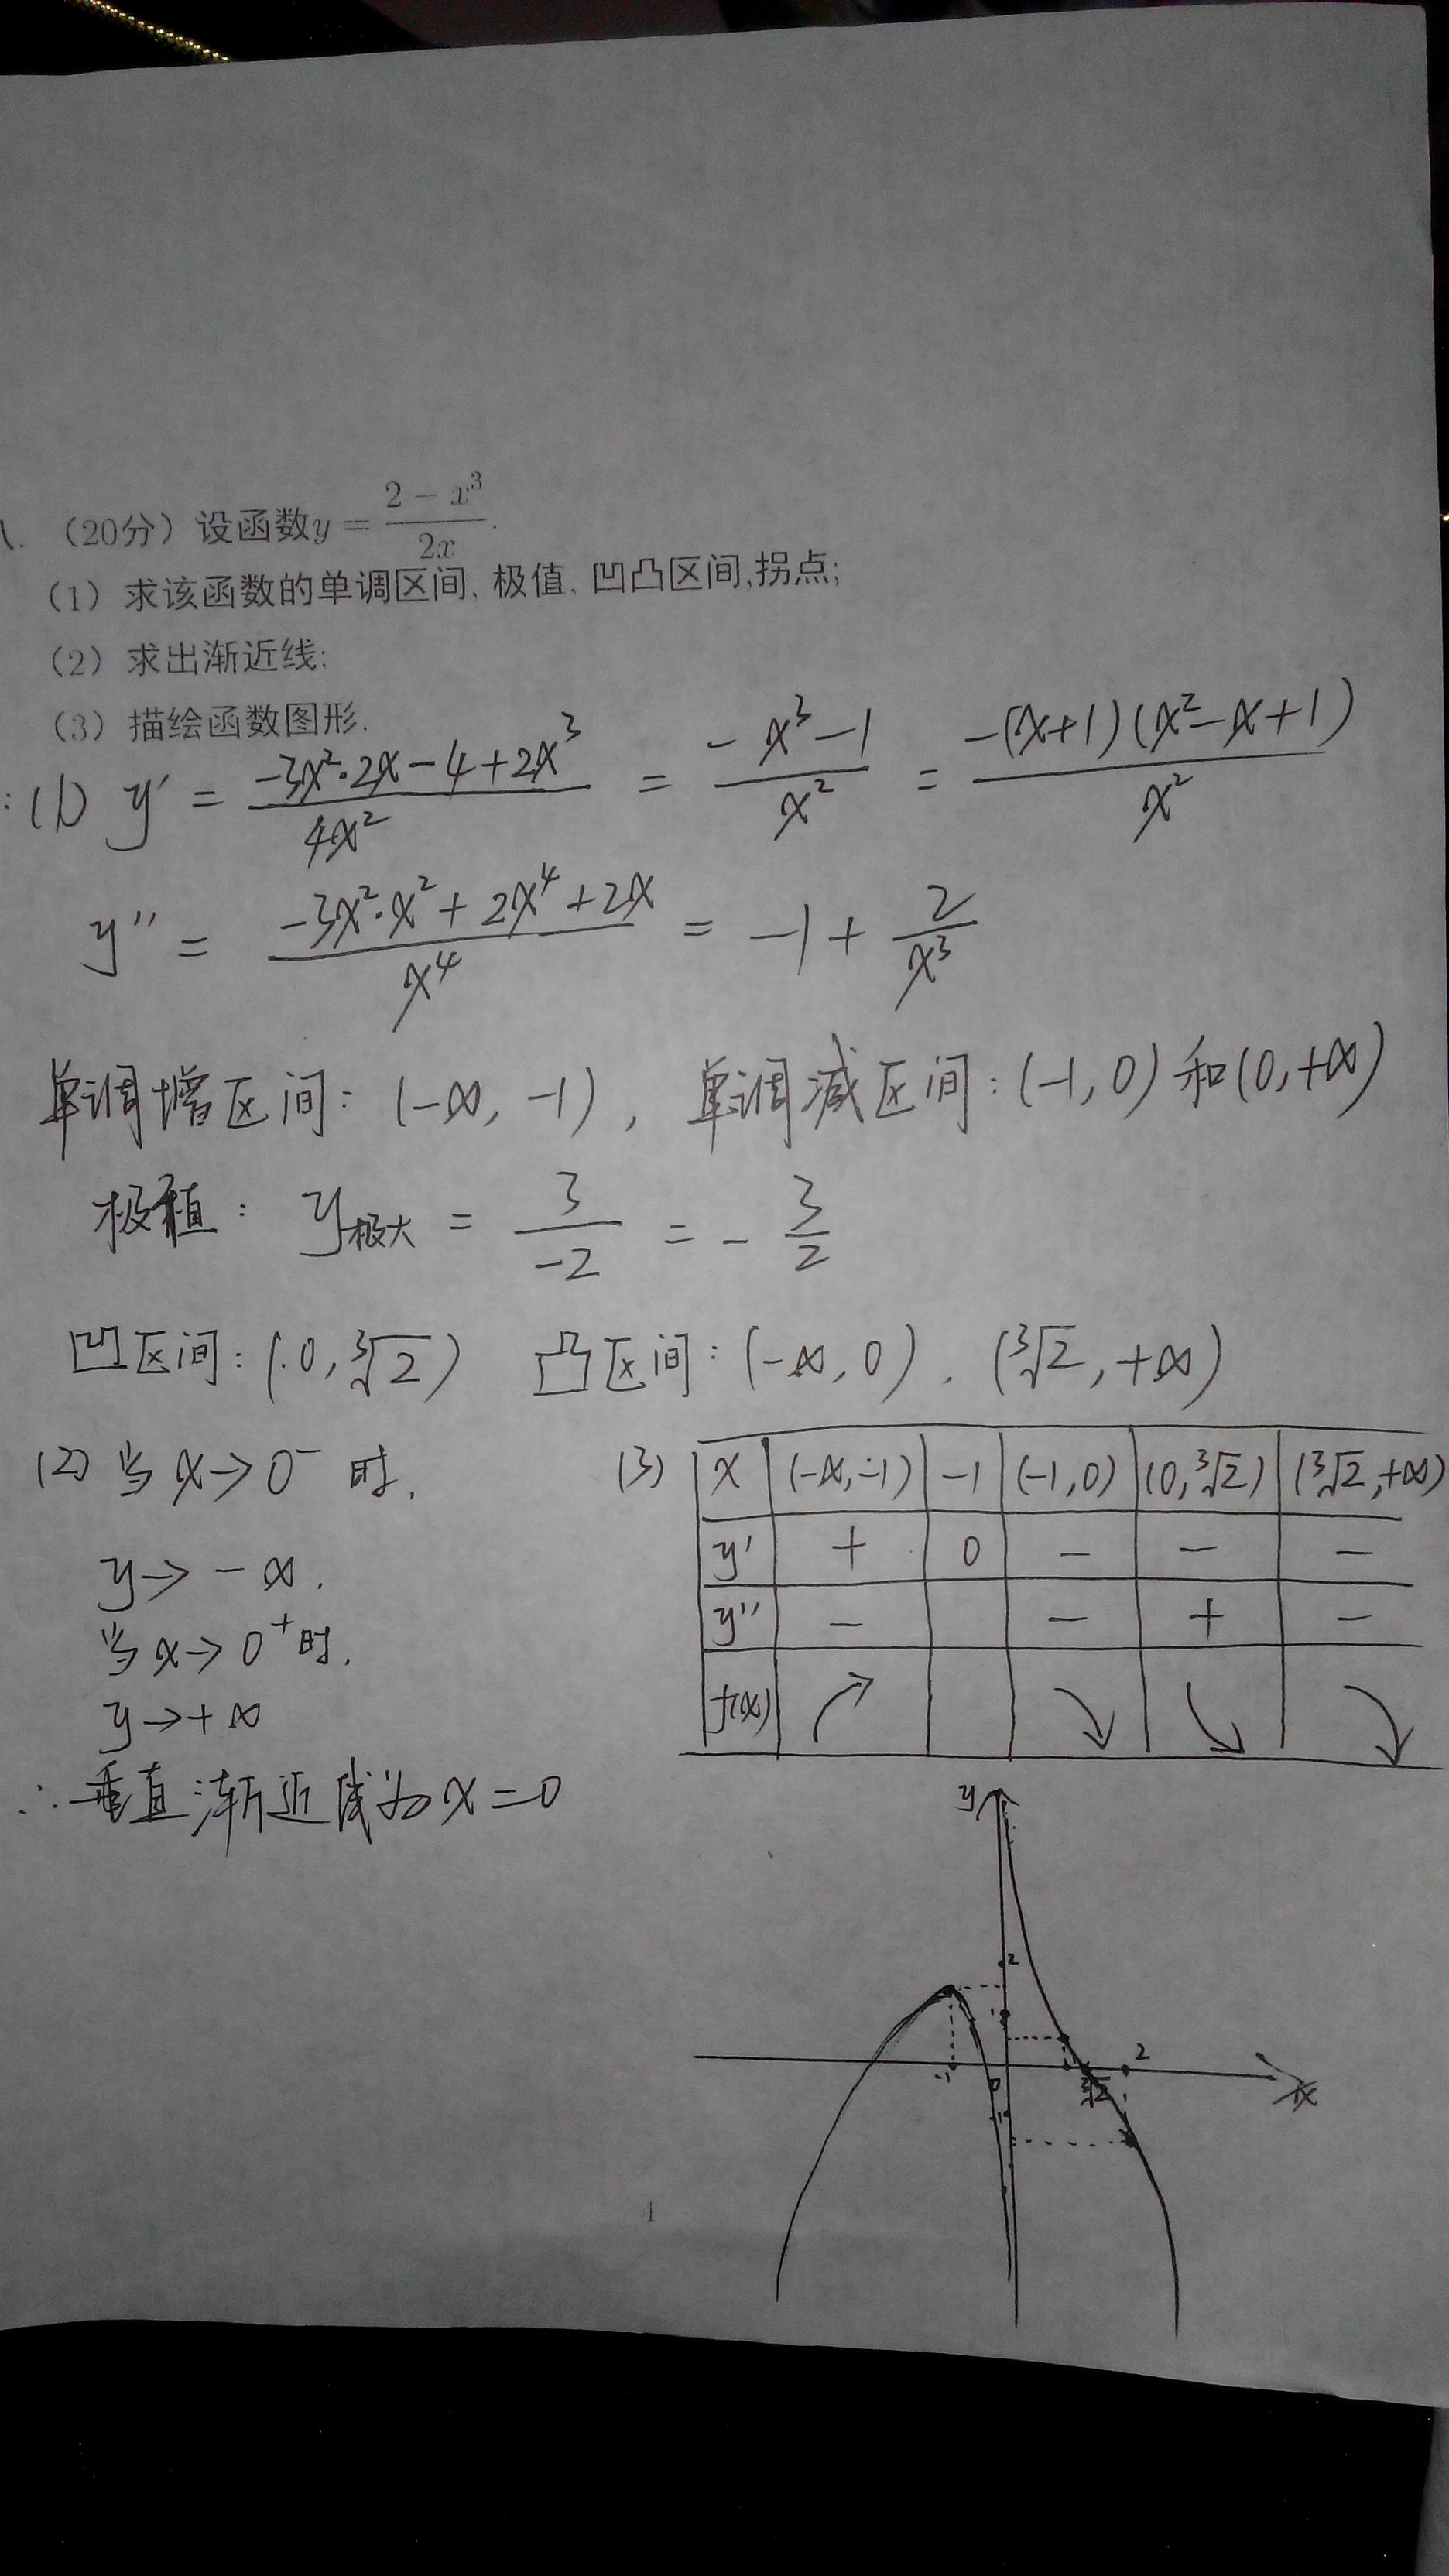 八. （20分）设函数y = \frac{2 - x^3}{2x}.
（1）求该函数的单调区间, 极值, 凹凸区间,拐点;
（2）求出渐近线;
（3）描绘函数图形.
: (1) y' = \frac{-3x^2·2x-4+2x^3}{4x^2} = \frac{-x^3-1}{x^2} = \frac{-(x+1)(x^2-x+1)}{x^2}
y'' = \frac{-3x^2·x^2+2x^4+2x}{x^4} = -1+\frac{2}{x^3}
单调增区间: (-∞, -1), 单调减区间: (-1, 0) 和 (0, +∞)
极值: y极大 = \frac{3}{-2} = -\frac{3}{2}
凹区间: (0, \sqrt[3]{2}) 凸区间: (-∞, 0), (\sqrt[3]{2}, +∞)
(2) 当 x→0^- 时,
y→ -∞.
当 x→0^+ 时,
y→+∞
∴ 垂直渐近线为 x=0
(3) x (-∞,-1) -1 (-1,0) (0,\sqrt[3]{2}) (\sqrt[3]{2},+∞)
y' + 0 - - -
y'' - - + -
f(x) ↗ ↘ ↘ ↘
y
2
1
-1 0 \sqrt[3]{2} 2 x
-1
1